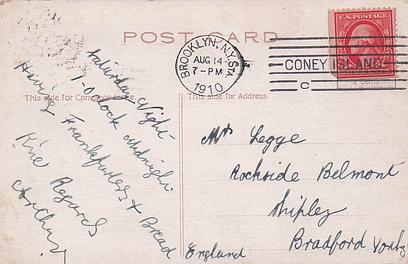 POST CARD
U.S. POSTAGE
BROOKLYN, N.Y. STA.
AUG 14
7-PM
1910
CONEY ISLAND
C
This side for Correspondence.
This side for Address.
Saturday Night
1-O Clock Midnight
Having Frankfurters & Bread
Kind Regards
Arthur
Mrs Legge
Rockside Belmont
Shipley
Bradford Yorks
England